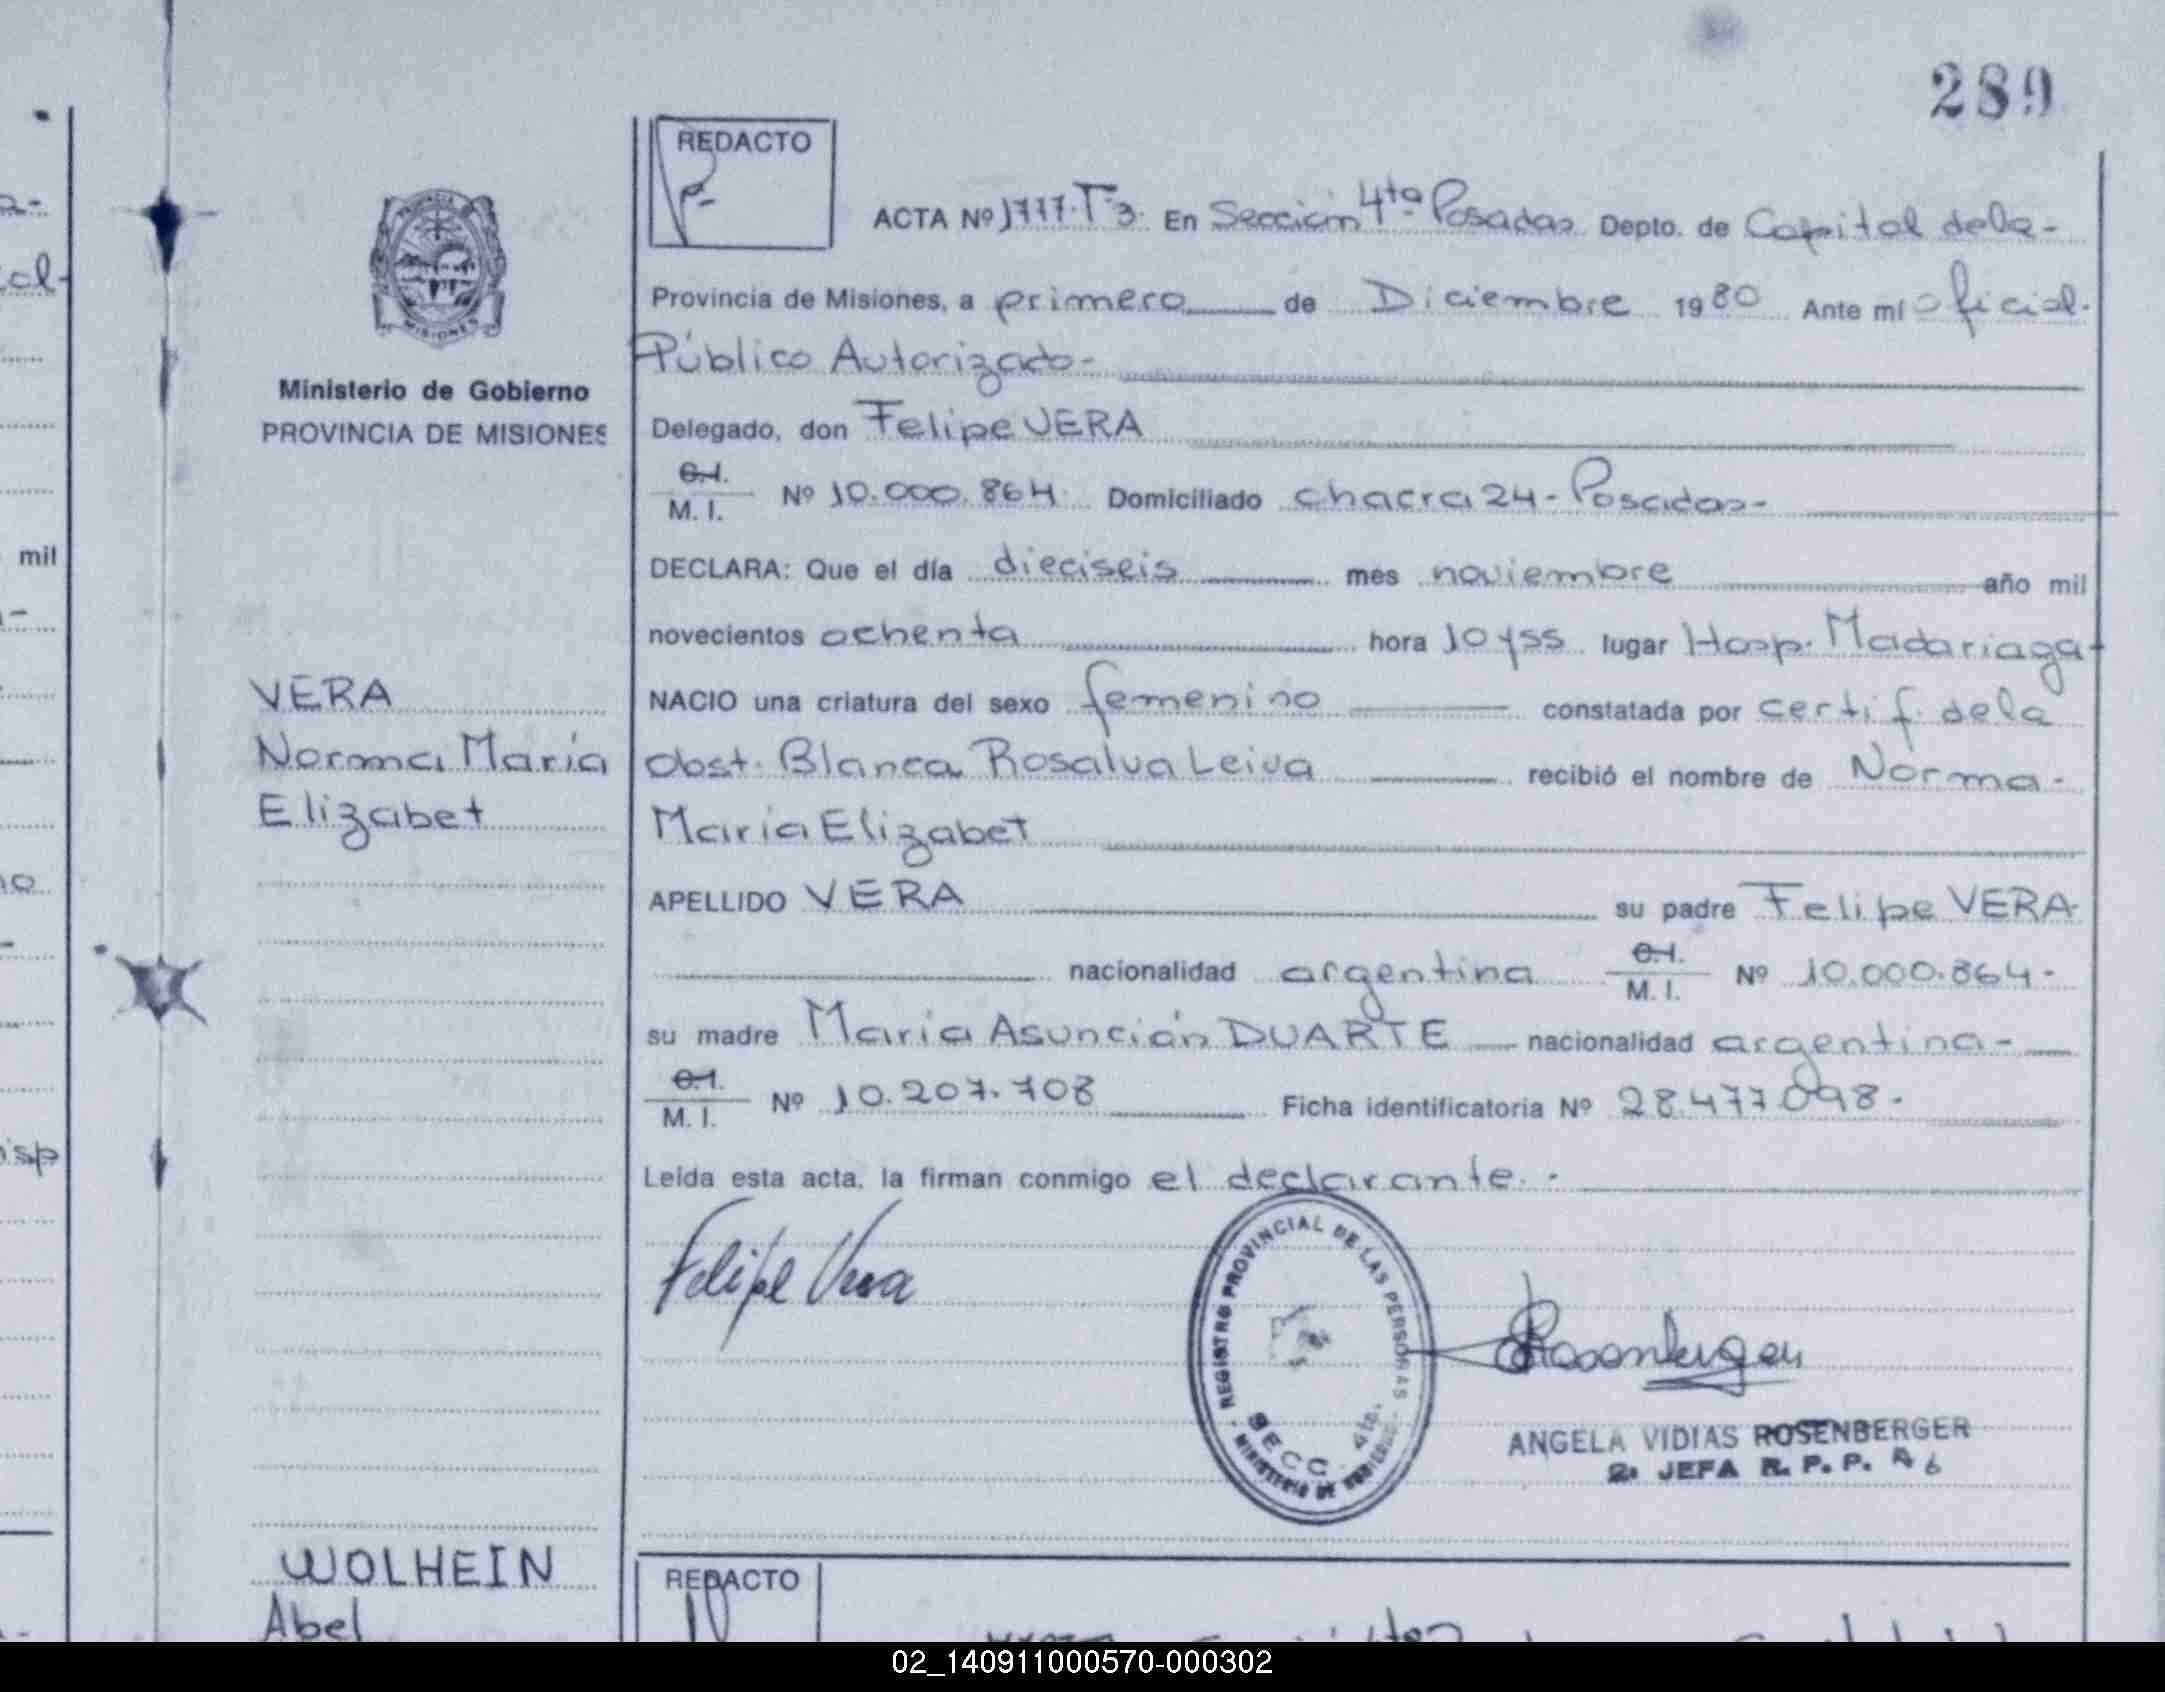 289
REDACTO
ACTA Nº 1777. T-3. En Sección 4ta Posadas Depto. de Capital dela-
Provincia de Misiones, a primero de Diciembre 1980 Ante mí oficial.
Público Autorizado-
Ministerio de Gobierno
PROVINCIA DE MISIONES
Delegado, don Felipe VERA
C.I.
M. I. Nº 10.000.864 Domiciliado chacra 24 - Posadas-
DECLARA: Que el día dieciseis mes noviembre año mil
novecientos ochenta hora 10 y 55 lugar Hosp. Madariaga
VERA
Norma María
Elizabet
NACIO una criatura del sexo femenino constatada por certif. dela
obst. Blanca Rosalva Leiva recibió el nombre de Norma-
María Elizabet
APELLIDO VERA su padre Felipe VERA
nacionalidad argentina C.I. M. I. Nº 10.000.864-
su madre María Asunción DUARTE nacionalidad argentina-
C.I.
M. I. Nº 10.207.708 Ficha identificatoria Nº 28.477.098-
Leída esta acta, la firman conmigo el declarante.-
Felipe Vera
REGISTRO PROVINCIAL DE LAS PERSONAS
SECC. 4ta.
- MINISTERIO DE GOBIERNO -
Rosenberger
ANGELA VIDIAS ROSENBERGER
2: JEFA R. P. P.
WOLHEIN
Abel
REDACTO
mil
02_140911000570-000302